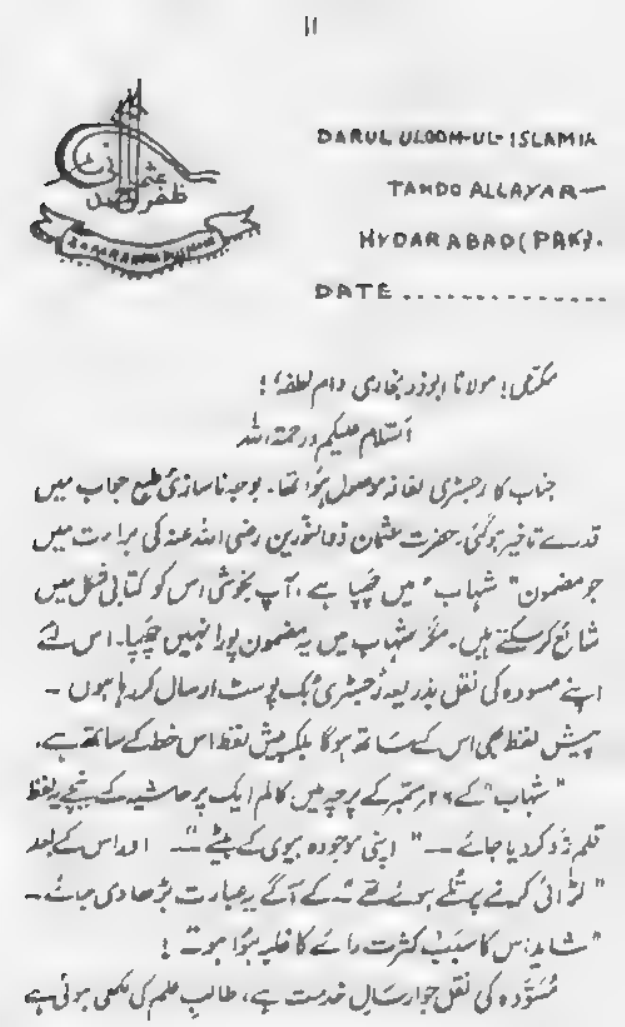 11
ظفر احمد عثمانی
DARUL ULOOM-UL-ISLAMIA
TANDO ALLAYAR—
HYDARABAD (PAK).
DATE ..............
مکرمی! مولانا ابوذر بخاری دام لطفہٗ!
السّلام علیکم ورحمۃ اللہ
جناب کا رجسٹری لفافہ موصول ہُوا تھا۔ بوجہ ناسازئ طبع جواب میں
قدرے تاخیر ہوگئی۔ حضرت عثمان ذوالنّورین رضی اللہ عنہ کی براءت میں
جو مضمون "شہاب" میں چھپا ہے، آپ بخوشی اس کو کتابی شکل میں
شائع کر سکتے ہیں۔ مگر شہاب میں یہ مضمون پورا نہیں چھپا۔ اس لئے
اپنے مسودہ کی نقل بذریعہ رجسٹری بُک پوسٹ ارسال کر رہا ہوں ۔
پیش لفظ بھی اس کے ساتھ ہوگا بلکہ پیش لفظ اس خط کے ساتھ ہے۔
"شہاب" کے ۲۶ ستمبر کے پرچہ میں کالم ایک پر حاشیہ کے نیچے یہ لفظ
قلم زد کر دیا جائے ـــ " اپنی موجودہ بیوی کے بیٹے " ـــ اور اس کے بعد
"لڑائی کرنے پر تُلے ہوئے تھے" ـــ کے آگے یہ عبارت بڑھا دی جائے ـــ
"شاید اس کا سبب کثرت رائے کا غلبہ ہُوا ہو" !
مُسوّدہ کی نقل جو ارسالِ خدمت ہے، طالبِ علم کی لکھی ہوئی ہے